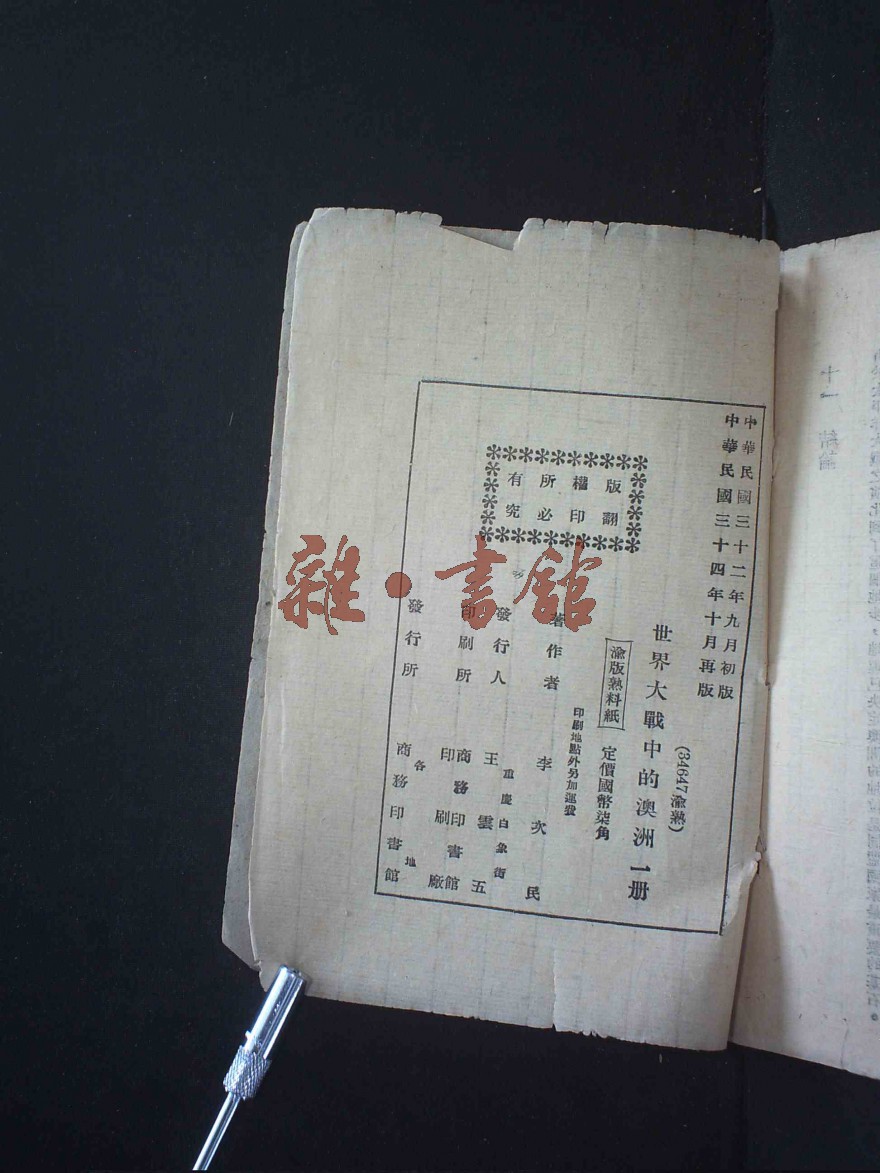 中華民國三十二年九月初版
中華民國三十四年十月再版
(34647渝熟)
世界大戰中的澳洲一册
渝版熟料紙
定價國幣柒角
印刷地點外另加運費
著作者 李次民
發行人 王雲五
重慶白象街
印刷所 商務印書館印刷廠
發行所 各地商務印書館
版權所有
翻印必究
雜·書館
十一 結論